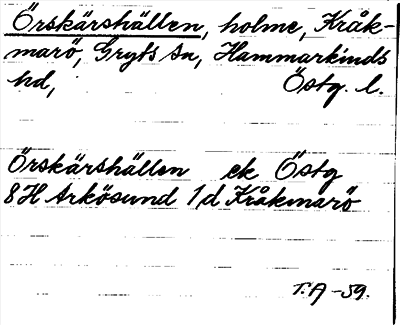 Örskärshällen, holme, Kråk-
marö, Gryts sn, Hammarkinds
hd, Östg. l.
Örskärshällen ek Östg
8H Arkösund 1d Kråkmarö
T.A -59.